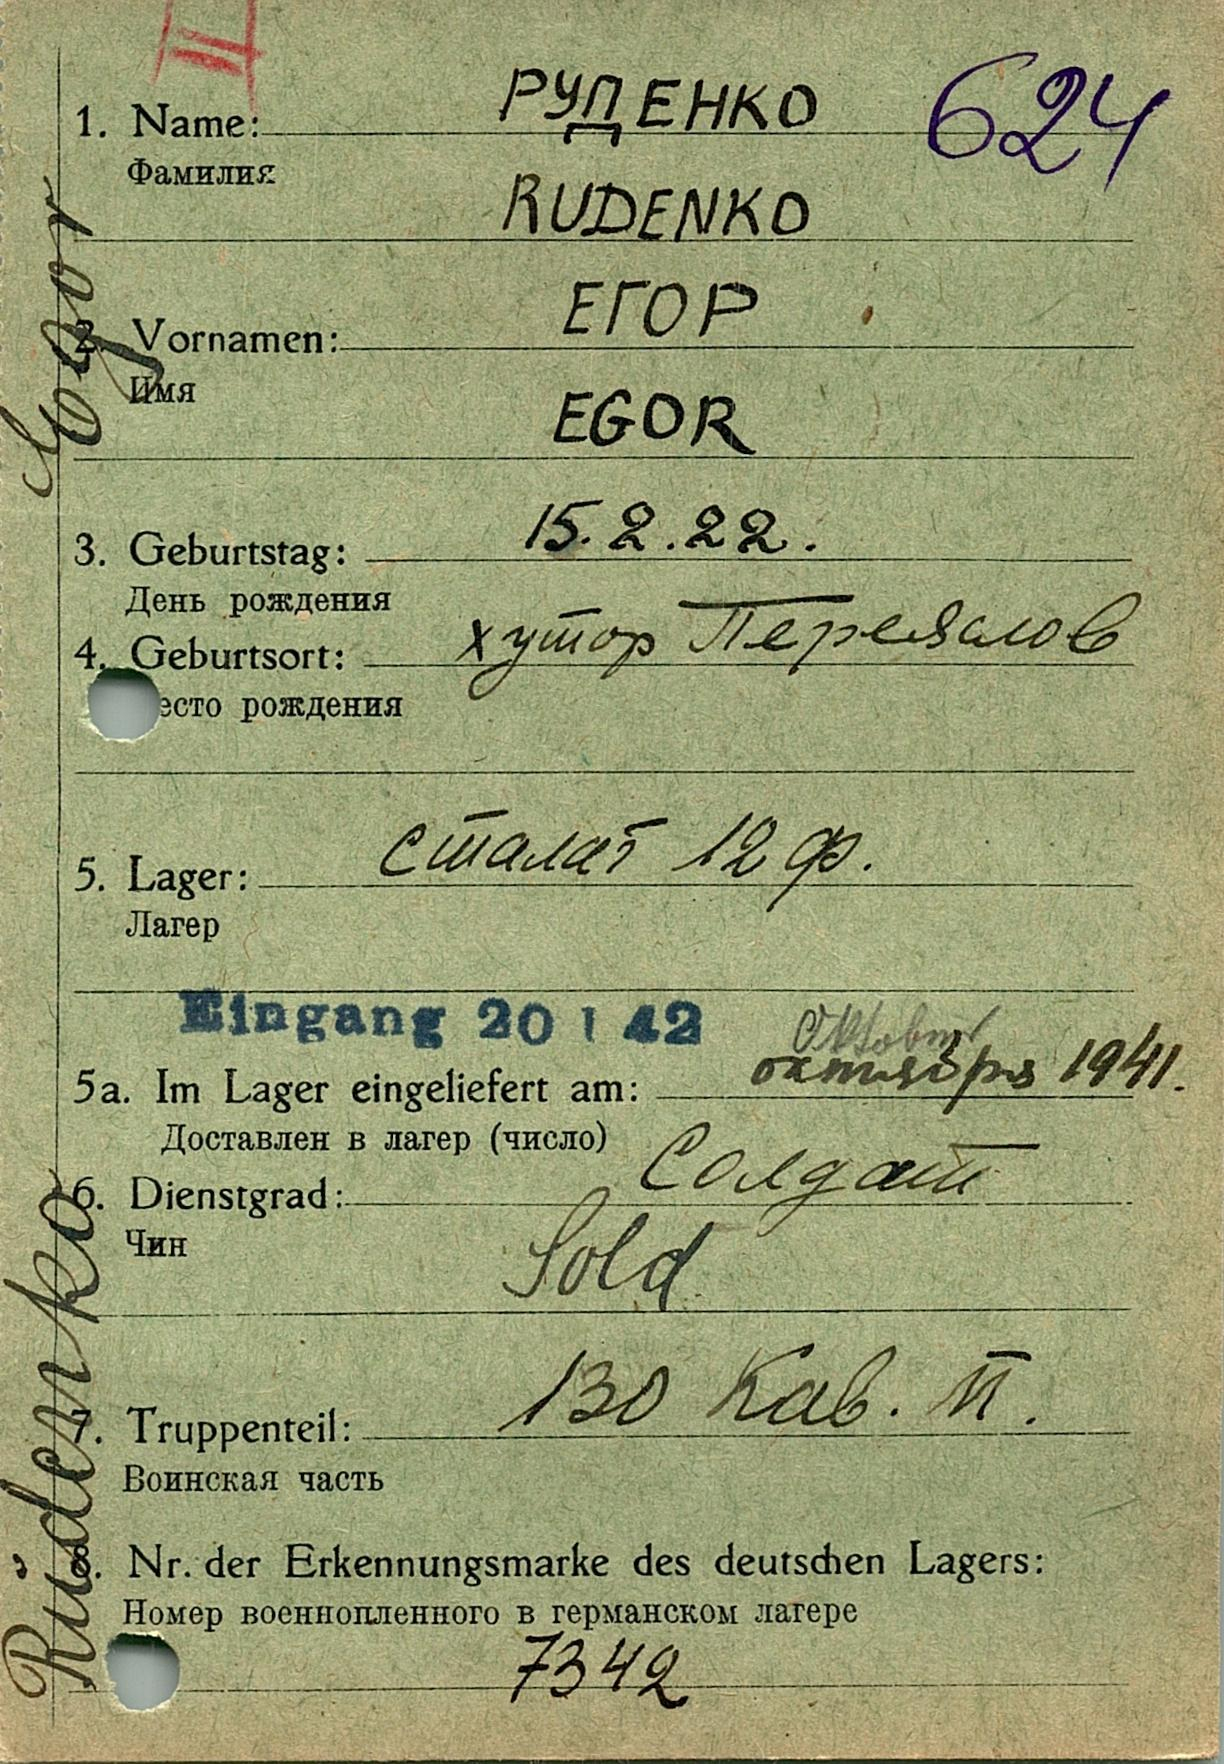 II
624
1. Name: РУДЕНКО
Фамилия
RUDENKO
2. Vornamen: ЕГОР
Имя
EGOR
3. Geburtstag: 15.2.22.
День рождения
4. Geburtsort: хутор Перевалов
есто рождения
5. Lager: сталаг 12 ф.
Лагер
Eingang 20 1 42
5a. Im Lager eingeliefert am: октября 1941.
Доставлен в лагер (число)
6. Dienstgrad: Солдат
Чин
Sold
7. Truppenteil: 130 Кав. П.
Воинская часть
8. Nr. der Erkennungsmarke des deutschen Lagers:
Номер военнопленного в германском лагере
7342
Rudenko Egor